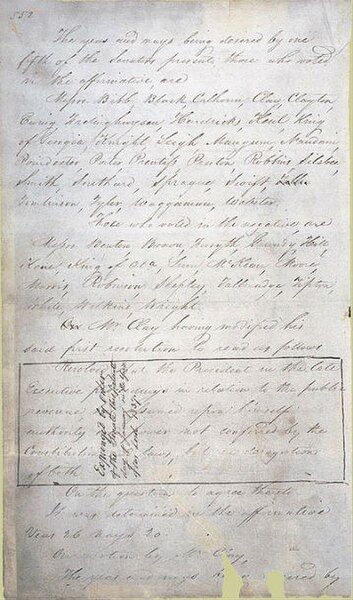 552
The yeas and nays being desired by one
fifth of the Senators present, those who voted
in the affirmative, are
Messrs Bibb, Black, Calhoun, Clay, Clayton
Ewing, Frelinghuysen, Hendricks, Kent, King
of Georgia, Knight, Leigh, Mangum, Naudain,
Poindexter, Porter, Prentiss, Preston, Robbins, Silsbee
Smith, Southard, Sprague, Swift,
Tomlinson, Tyler, Waggaman, Webster.
Those who voted in the negative are
Messrs Benton, Brown, Forsyth, Grundy, Hill
Kane, King of Ala, Linn, McKean, Moore,
Morris, Robinson, Shepley, Tallmadge, Tipton,
White, Wilkins, Wright.
Mr Clay having modified his
said first resolution to read as follows
Resolved that the President in the late
Executive proceedings in relation to the public
revenue assumed upon himself
authority and power not conferred by the
Constitution and laws, but in derogation
of both
Expunged by order
of the Senate
On the question to agree thereto
It was determined in the affirmative
Yeas 26 Nays 20
On motion by Mr Clay,
The yeas and nays being desired by